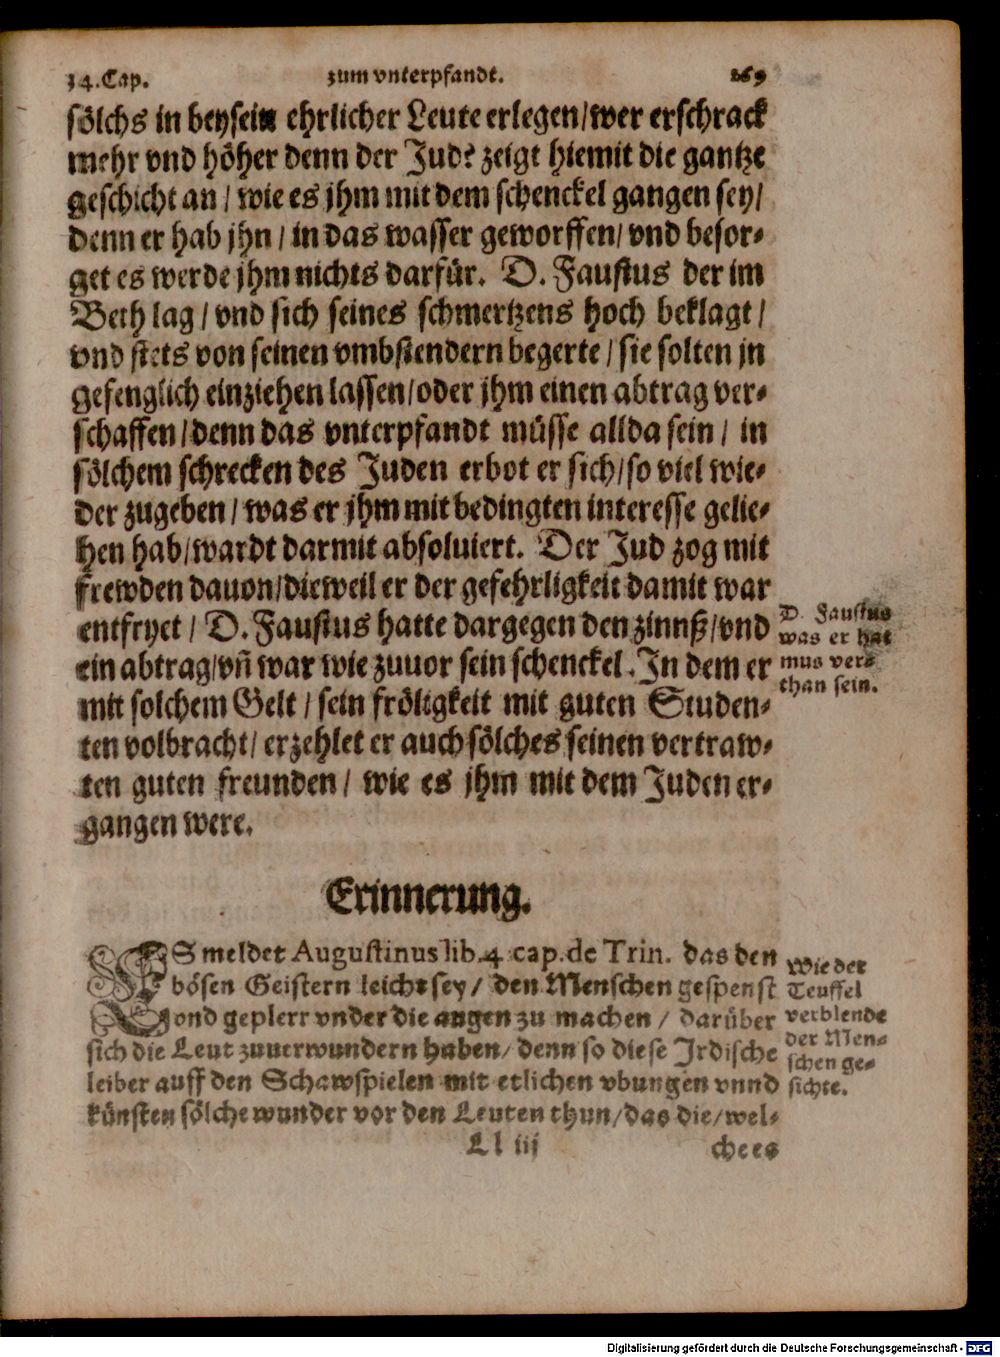 34.Cap. zum vnterpfandt. 269
sölchs in beysein ehrlicher Leute erlegen/wer erschrack
mehr vnd höher denn der Jud? zeigt hiemit die gantze
geschicht an / wie es jhm mit dem schenckel gangen sey/
denn er hab jhn / in das wasser geworffen/ vnd besor-
get es werde jhm nichts darfür. D. Faustus der im
Beth lag / vnd sich seines schmertzens hoch beklagt /
vnd stets von seinen vmbstendern begerte / sie solten jn
gefenglich einziehen lassen/oder jhm einen abtrag ver-
schaffen/denn das vnterpfandt müsse allda sein / in
sölchem schrecken des Juden erbot er sich/so viel wie-
der zugeben / was er jhm mit bedingten interesse gelie-
hen hab/wardt darmit absoluiert. Der Jud zog mit
frewden dauon/dieweil er der gefehrligkeit damit war
entfryet / D. Faustus hatte dargegen den zinnß/vnd
ein abtrag/vñ war wie zuuor sein schenckel. In dem er
mit solchem Gelt / sein fröligkeit mit guten Studen-
ten volbracht/ erzehlet er auch sölches seinen vertraw-
ten guten freunden / wie es jhm mit dem Juden er-
gangen were.
D. Faustus
was er hat
mus ver-
than sein.
Erinnerung.
ES meldet Augustinus lib. 4 cap. de Trin. das den
bösen Geistern leicht sey / den Menschen gespenst
vnd geplerr vnder die augen zu machen / darüber
sich die Leut zuuerwundern haben/ denn so diese Irdische
leiber auff den Schawspielen mit etlichen vbungen vnnd
künsten sölche wunder vor den Leuten thun/das die/wel-
Wie der
Teuffel
verblende
der Men-
schen ge-
sichte.
Ll iij chees
Digitalisierung gefördert durch die Deutsche Forschungsgemeinschaft - DFG